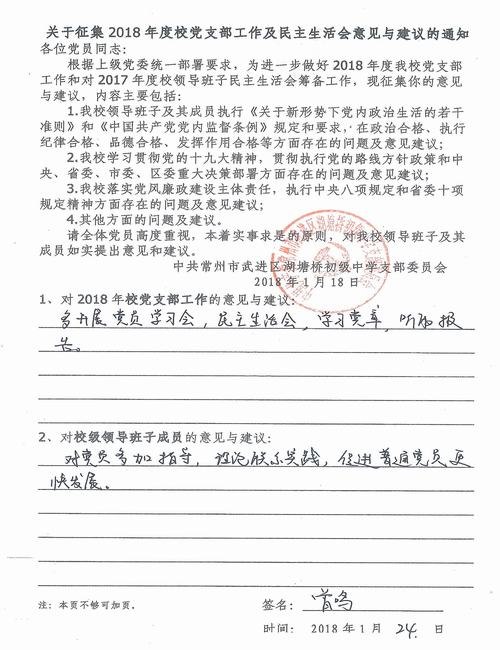 关于征集 2018 年度校党支部工作及民主生活会意见与建议的通知
各位党员同志：
根据上级党委统一部署要求，为进一步做好 2018 年度我校党支部
工作和对 2017 年度校领导班子民主生活会筹备工作，现征集你的意见
与建议，内容主要包括：
1.我校领导班子及其成员执行《关于新形势下党内政治生活的若干
准则》和《中国共产党党内监督条例》规定和要求，在政治合格、执行
纪律合格、品德合格、发挥作用合格等方面存在的问题及意见建议；
2.我校学习贯彻党的十九大精神，贯彻执行党的路线方针政策和中
央、省委、市委、区委重大决策部署方面存在的问题及意见建议；
3.我校落实党风廉政建设主体责任，执行中央八项规定和省委十项
规定精神方面存在的问题及意见建议；
4.其他方面的问题及建议。
请全体党员高度重视，本着实事求是的原则，对我校领导班子及其
成员如实提出意见和建议。
中共常州市武进区湖塘桥初级中学支部委员会
2018 年 1 月 18 日
1、对 2018 年校党支部工作的意见与建议：
多开展党员学习会，民主生活会，学习党章，听取报
告。
2、对校级领导班子成员的意见与建议：
对党员多加指导，理论联系实践，促进普通党员更
快发展。
注：本页不够可加页。
签名：
时间： 2018 年 1 月 24 日